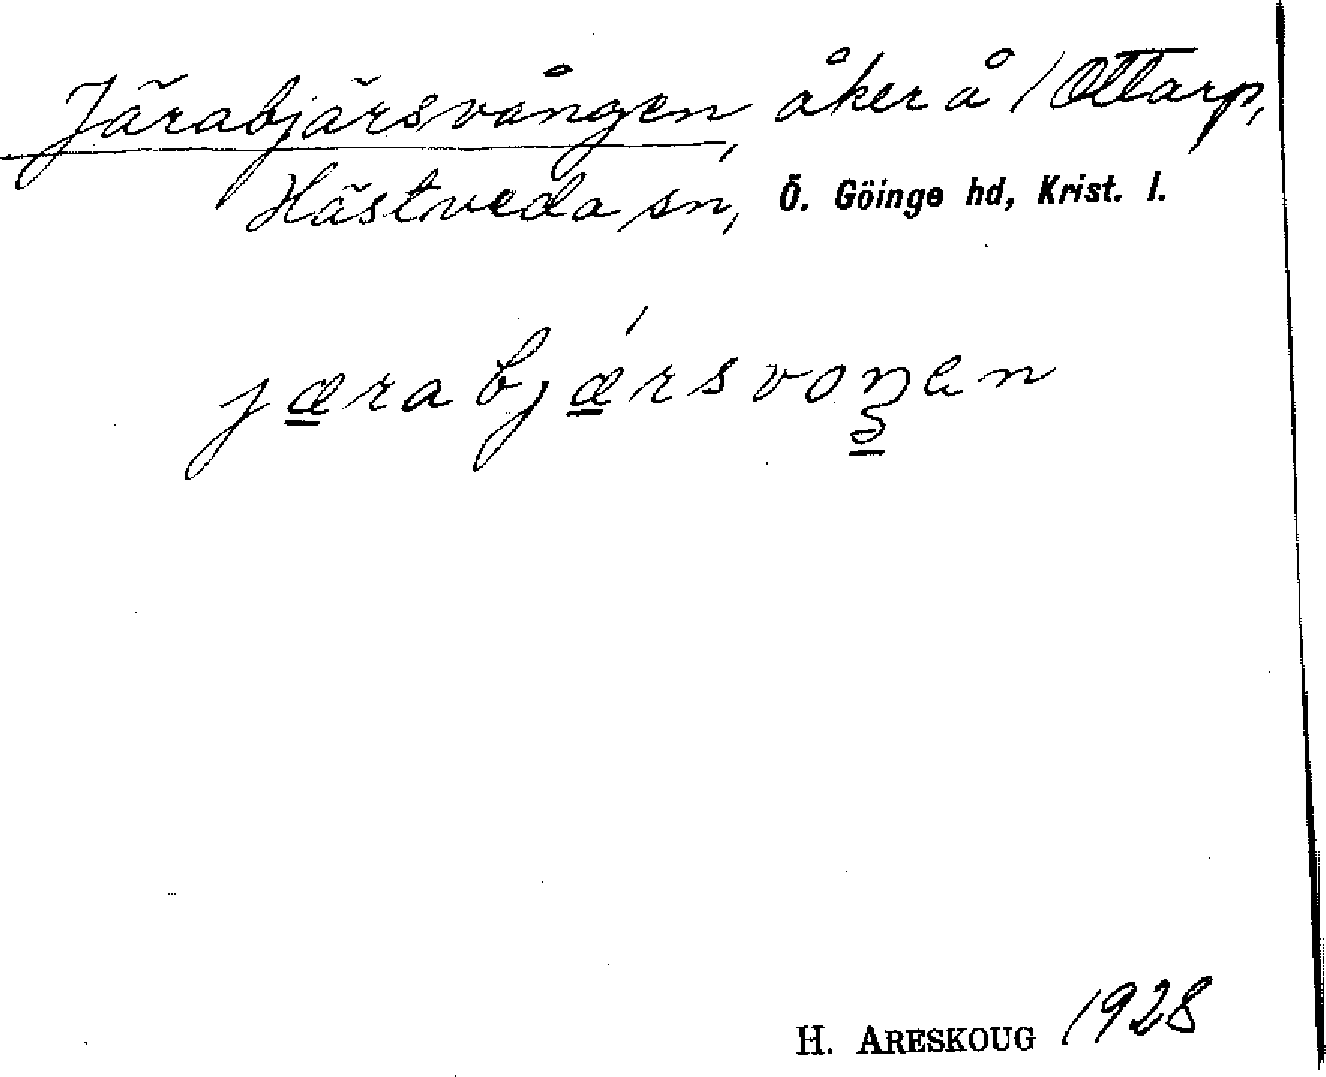 Järabjärsvången, åker å 1 Ottarp,
Hästveda sn, Ö. Göinge hd, Krist. l.
jærabjǽrsvoŋen
H. ARESKOUG 1928